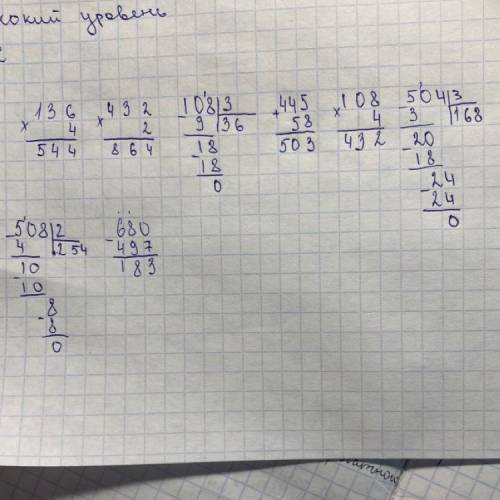 уровень
136 × 4 544
× 432 2 864
- 108 3 9 36 18 - 18 0
+ 445 58 503
× 108 4 432
- 504 3 3 168 - 20 18 - 24 24 0
- 508 2 4 254 10 - 10 8 - 8 0
- 680 497 183